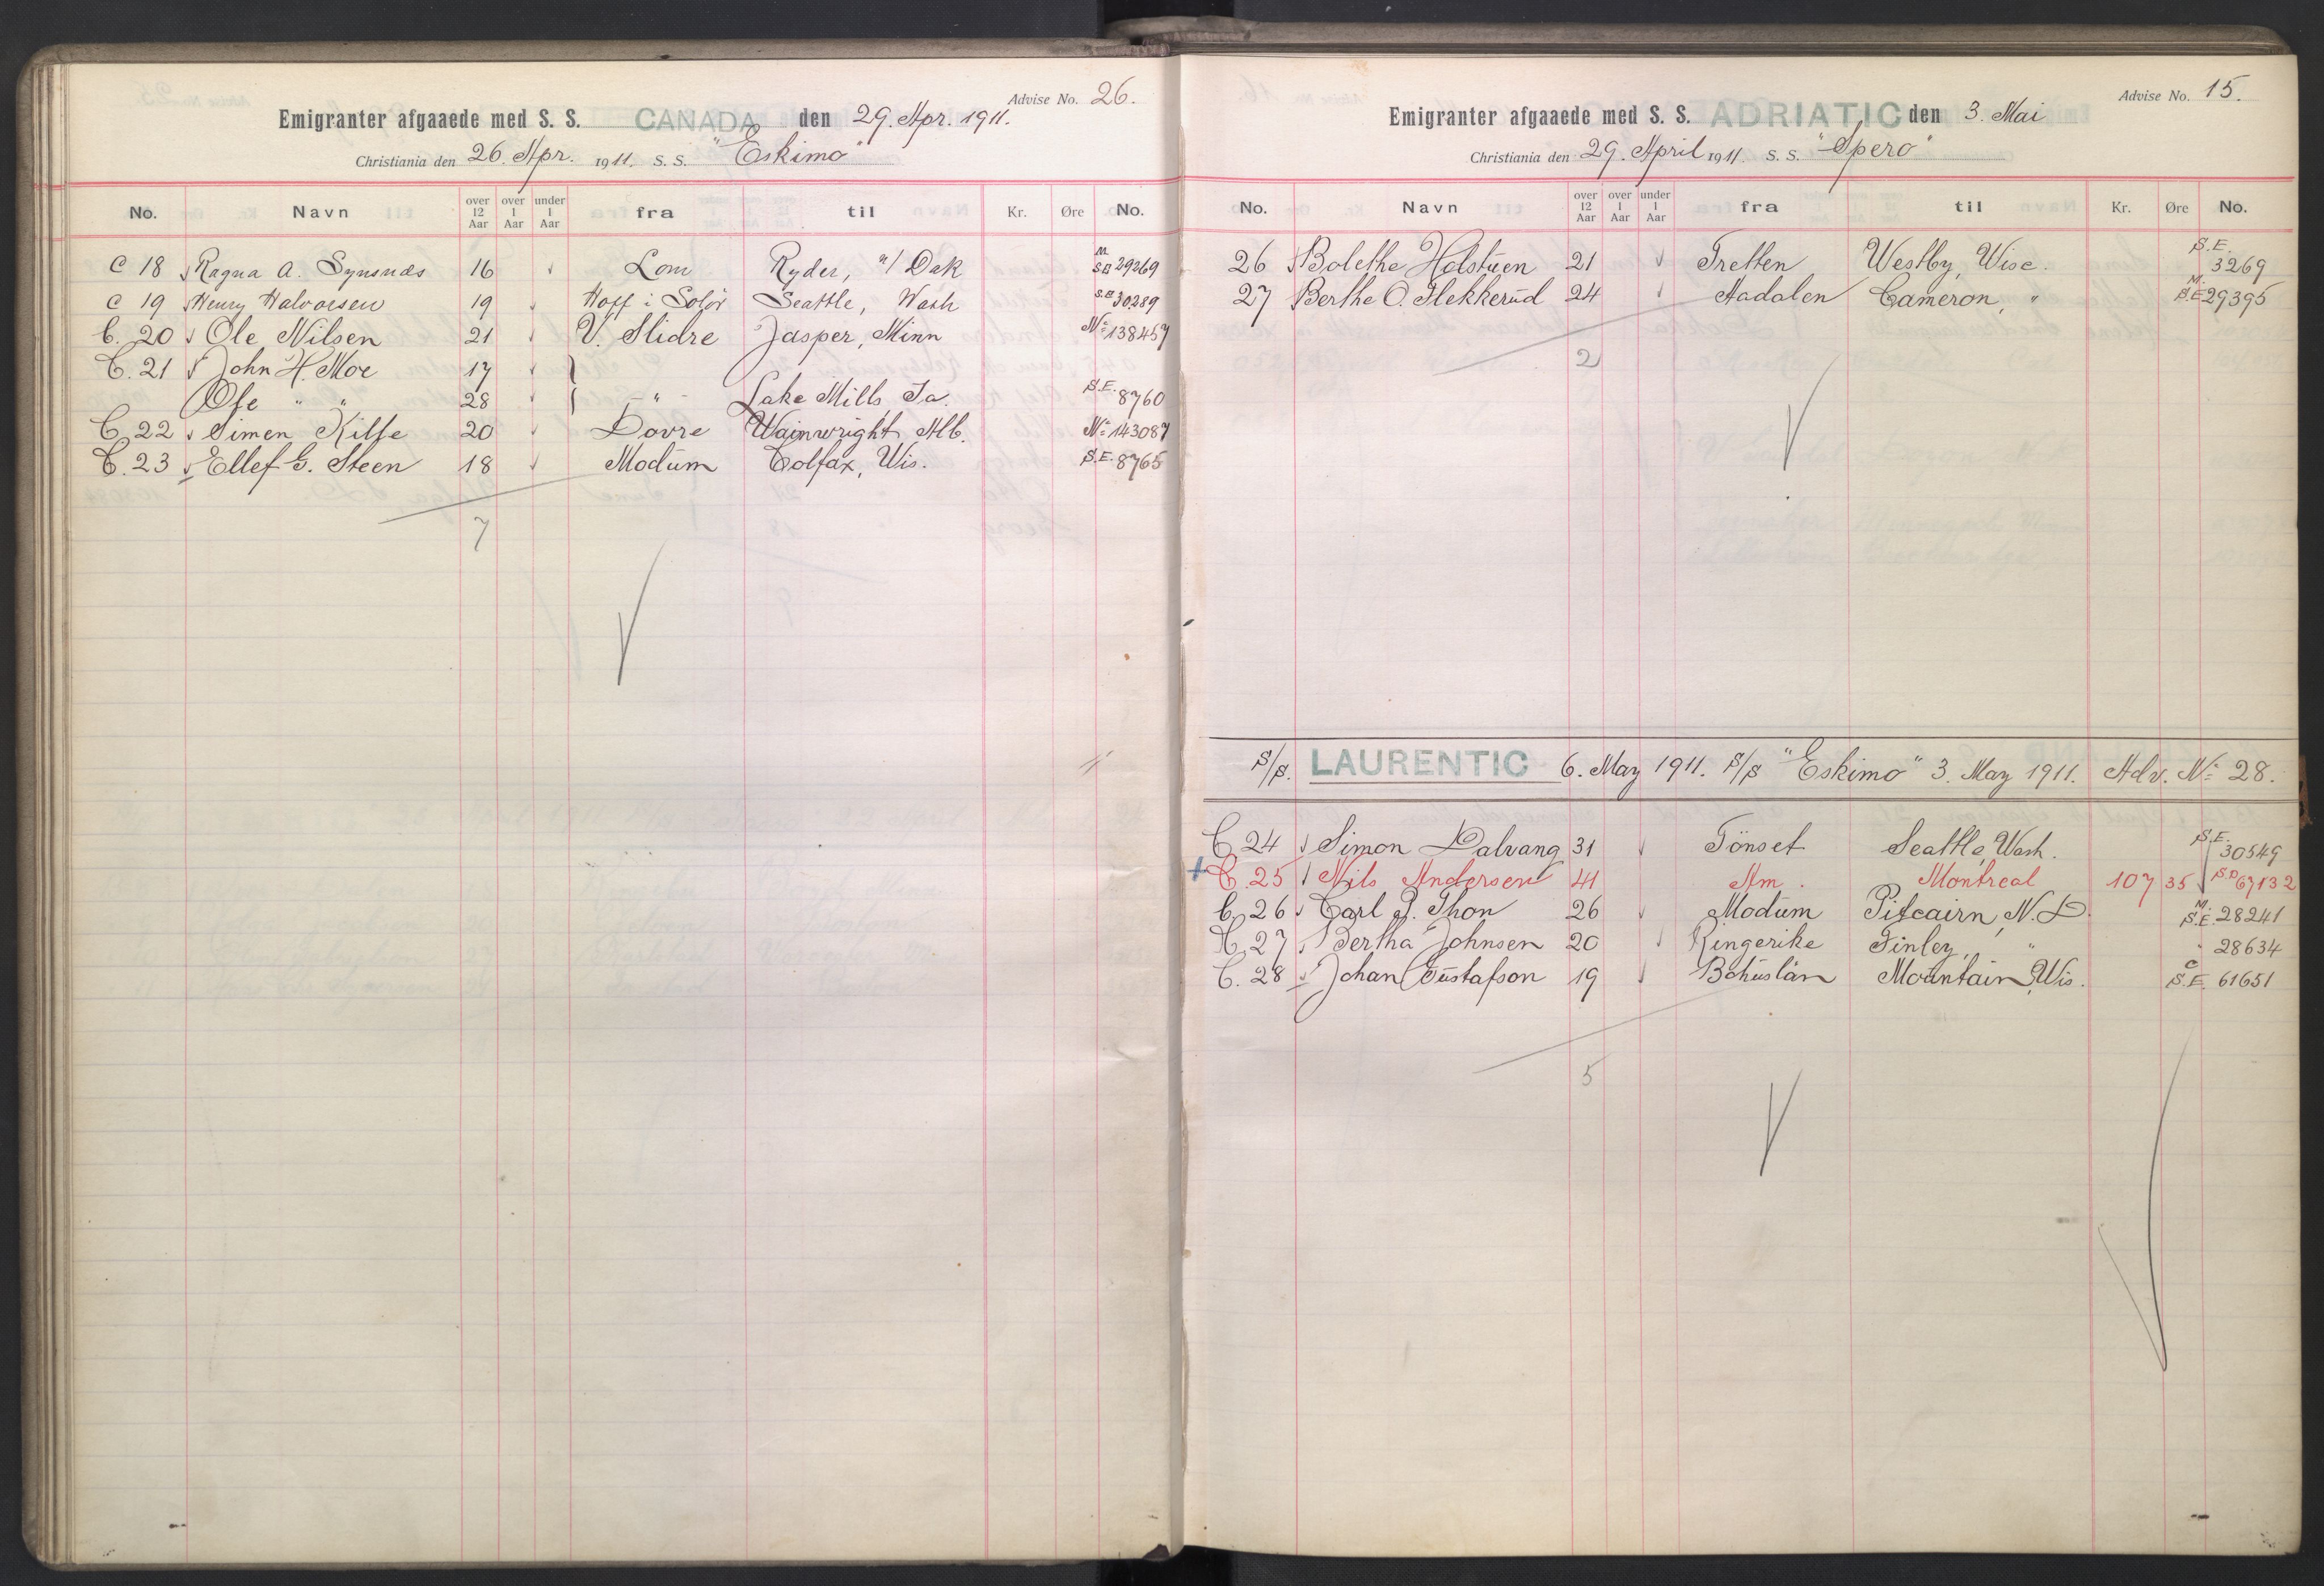 Advise No. 26.
Emigranter afgaaede med S. S. CANADA den 29. Apr. 1911.
Christiania den 26. Apr. 1911. S. S. "Eskimo"
No. Navn over 12 Aar over 1 Aar under 1 Aar fra til Kr. Øre No.
C 18 Ragna A. Synsnæs 16 Lom Ryder, N/ Dak M. S.E 29269
C 19 Henry Halvorsen 19 Hoff i Solør Seattle, Wash S.E. 30289
C. 20 Ole Nilsen 21 V. Slidre Jasper, Minn No 138457
C. 21 John H. Moe 17
Ole " " 28 " Lake Mills, Ia. S.E. 8760
C. 22 Simen Kilse 20 Dovre Wainwright Alb. No 143087
C. 23 Ellef G. Steen 18 Modum Colfax, Wis. S.E. 8765
7
Advise No. 15.
Emigranter afgaaede med S. S. ADRIATIC den 3. Mai
Christiania den 29. April 1911. S. S. "Spero"
No. Navn over 12 Aar over 1 Aar under 1 Aar fra til Kr. Øre No.
26 Bolethe Holstuen 21 Tretten Westby, Wisc. S.E. 3269
27 Berthe O. Flekkerud 24 Aadalen Cameron, " M. S.E 29395
2
S/S. LAURENTIC 6. May 1911. S/S "Eskimo" 3. May 1911. Adv. No 28.
C. 24 Simon Dalvang 31 Tönset Seattle, Wash. S.E. 30549
C. 25 Nils Andersen 41 Am. Montreal 107 35 S.D 67132
C. 26 Carl J. Thon 26 Modum Pitcairn, N.D. M. S.E. 28241
C. 27 Bertha Johnsen 20 Ringerike Finley, " " 28634
C. 28 Johan Gustafson 19 Bohuslän Mountain, Wis. C S.E. 61651
5